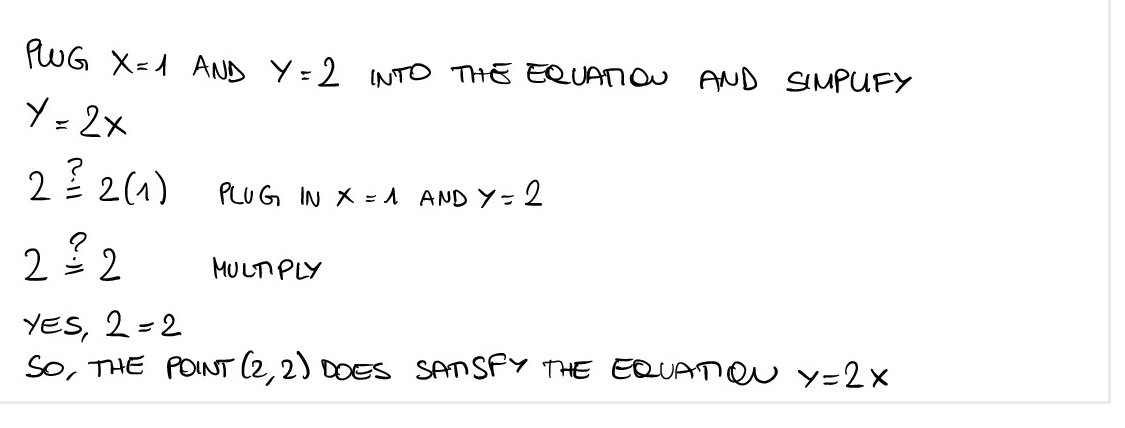 PLUG X=1 AND Y=2 INTO THE EQUATION AND SIMPLIFY
Y=2x
2 ≟ 2(1) PLUG IN X=1 AND Y=2
2 ≟ 2 MULTIPLY
YES, 2=2
SO, THE POINT (2,2) DOES SATISFY THE EQUATION Y=2x